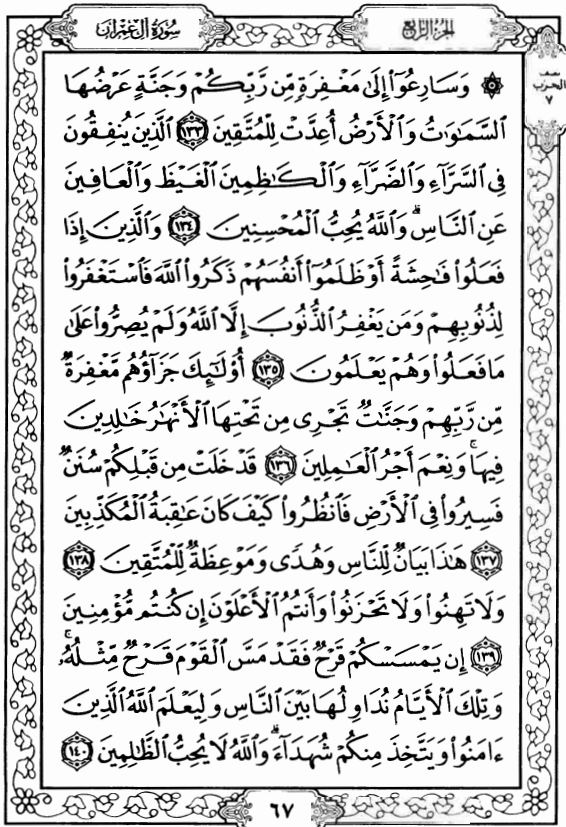 الجزء الرابع
سورة آل عمران
نصف
الحزب
٧
۞ وَسَارِعُوٓا۟ إِلَىٰ مَغْفِرَةٍ مِّن رَّبِّكُمْ وَجَنَّةٍ عَرْضُهَا
السَّمَٰوَٰتُ وَالْأَرْضُ أُعِدَّتْ لِلْمُتَّقِينَ ١٣٣ الَّذِينَ يُنفِقُونَ
فِى السَّرَّآءِ وَالضَّرَّآءِ وَالْكَٰظِمِينَ الْغَيْظَ وَالْعَافِينَ
عَنِ النَّاسِ ۗ وَاللَّهُ يُحِبُّ الْمُحْسِنِينَ ١٣٤ وَالَّذِينَ إِذَا
فَعَلُوا۟ فَٰحِشَةً أَوْ ظَلَمُوٓا۟ أَنفُسَهُمْ ذَكَرُوا۟ اللَّهَ فَاسْتَغْفَرُوا۟
لِذُنُوبِهِمْ وَمَن يَغْفِرُ الذُّنُوبَ إِلَّا اللَّهُ وَلَمْ يُصِرُّوا۟ عَلَىٰ
مَا فَعَلُوا۟ وَهُمْ يَعْلَمُونَ ١٣٥ أُو۟لَٰٓئِكَ جَزَآؤُهُم مَّغْفِرَةٌ
مِّن رَّبِّهِمْ وَجَنَّٰتٌ تَجْرِى مِن تَحْتِهَا الْأَنْهَٰرُ خَٰلِدِينَ
فِيهَا ۚ وَنِعْمَ أَجْرُ الْعَٰمِلِينَ ١٣٦ قَدْ خَلَتْ مِن قَبْلِكُمْ سُنَنٌ
فَسِيرُوا۟ فِى الْأَرْضِ فَانظُرُوا۟ كَيْفَ كَانَ عَٰقِبَةُ الْمُكَذِّبِينَ
١٣٧ هَٰذَا بَيَانٌ لِّلنَّاسِ وَهُدًى وَمَوْعِظَةٌ لِّلْمُتَّقِينَ ١٣٨
وَلَا تَهِنُوا۟ وَلَا تَحْزَنُوا۟ وَأَنتُمُ الْأَعْلَوْنَ إِن كُنتُم مُّؤْمِنِينَ
١٣٩ إِن يَمْسَسْكُمْ قَرْحٌ فَقَدْ مَسَّ الْقَوْمَ قَرْحٌ مِّثْلُهُۥ ۚ
وَتِلْكَ الْأَيَّامُ نُدَاوِلُهَا بَيْنَ النَّاسِ وَلِيَعْلَمَ اللَّهُ الَّذِينَ
ءَامَنُوا۟ وَيَتَّخِذَ مِنكُمْ شُهَدَآءَ ۗ وَاللَّهُ لَا يُحِبُّ الظَّٰلِمِينَ ١٤٠
٦٧